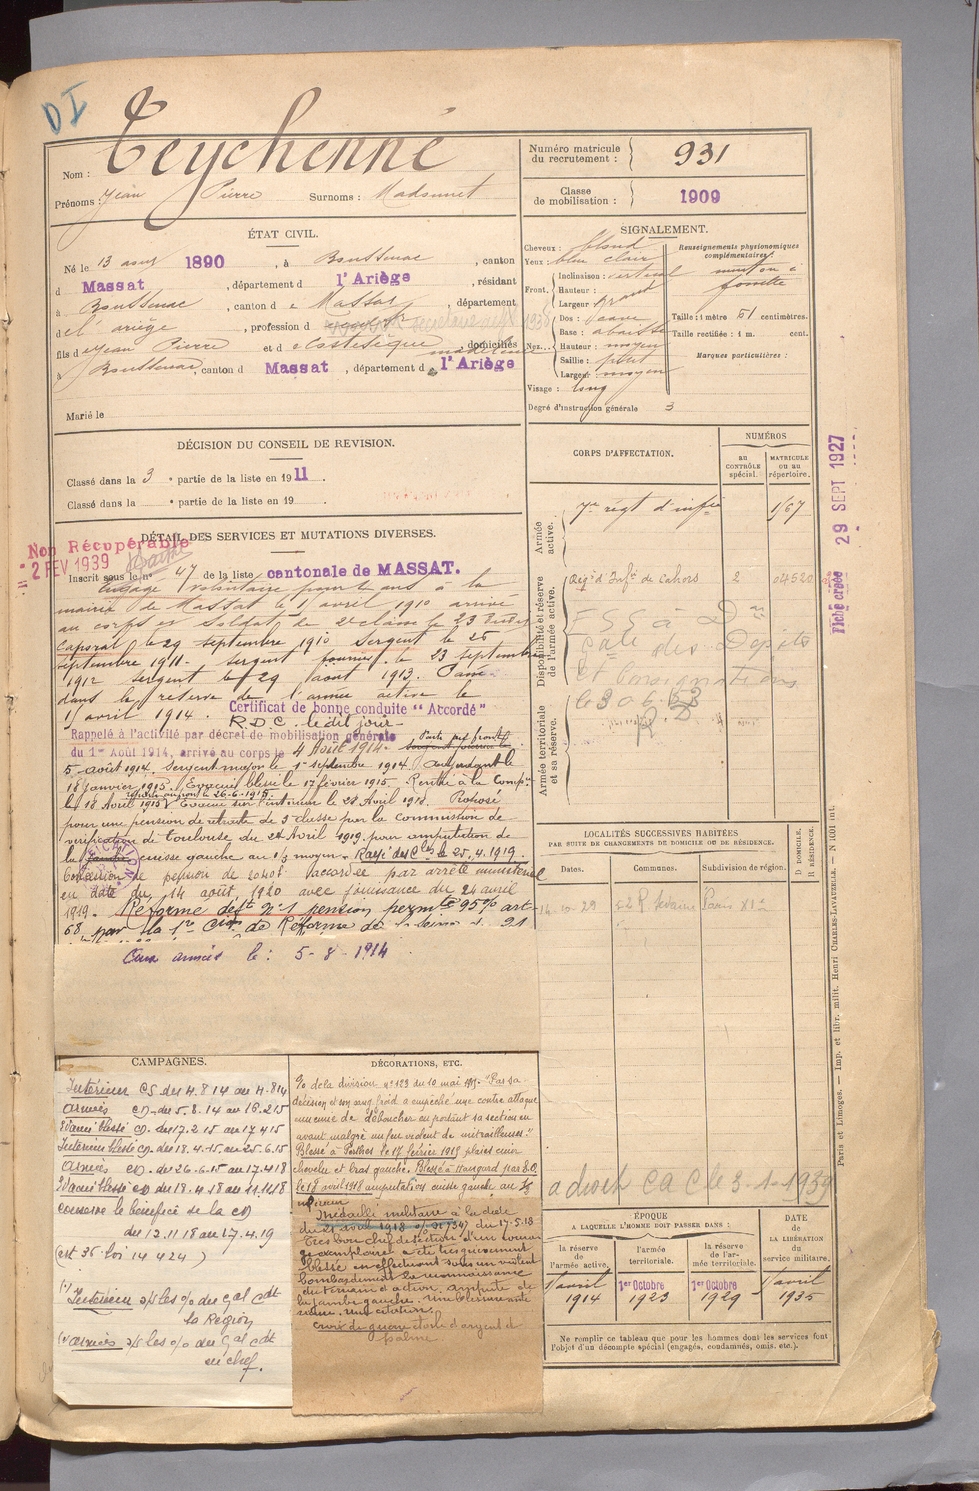 D I
Nom : Teychenné
Prénoms : Jean Pierre Surnoms : Madounet
Numéro matricule du recrutement : 931
Classe de mobilisation : 1909
ÉTAT CIVIL.
Né le 13 1890, à Boussenac, canton
d Massat, département d l'Ariège, résidant
à Boussenac, canton d e Massat, département
d e l'ariège, profession d
fils d e Jean Pierre et d e , domiciliés
à Boussenac, canton d Massat, département d l'Ariège
Marié le
SIGNALEMENT.
Cheveux : blond
Yeux : bleu clair
Front. Inclinaison : vertical
Hauteur :
Largeur : grand
Nez. Dos : cave
Base : abaissé
Hauteur : moyen
Saillie : petit
Largeur : moyen
Visage : long
Renseignements physionomiques complémentaires :
menton à
fossette
Taille : 1 mètre 61 centimètres.
Taille rectifiée : 1 m. cent.
Marques particulières :
Degré d'instruction générale 3
DÉCISION DU CONSEIL DE REVISION.
Classé dans la 3e partie de la liste en 1911.
Classé dans la e partie de la liste en 19 .
DÉTAIL DES SERVICES ET MUTATIONS DIVERSES.
Non Récupérable
2 FEV 1939
Inscrit sous le n° 47 de la liste cantonale de MASSAT.
Engagé volontaire pour 4 ans à la
mairie de Massat le 15 avril 1910 arrivé
au corps et Soldat de 2e classe le 23 dudit
Caporal le 29 septembre 1910 Sergent le 25
septembre 1911. sergent fourrier le 23 septembre
1912 sergent le 29 août 1913. Passé
dans la réserve de l'armée active le
15 avril 1914. Certificat de bonne conduite "Accordé"
R.D.C. le dit jour
Rappelé à l'activité par décret de mobilisation générale
du 1er Août 1914, arrivé au corps le 4 Août 1914.
5 août 1914. Sergent major le 1er septembre 1914. Adjudant le
18 janvier 1915. Evacué blessé le 17 février 1915. Rentré à la Compie
le 18 Avril 1915. Evacué sur l'intérieur le 28 Avril 1918. Proposé
pour une pension de retraite de 3e classe par la Commission de
vérification de Toulouse du 24 Avril 1919 pour amputation de
la cuisse gauche au 1/3 moyen. Rayé des Cles le 25.4.1919.
Concession de pension de accordée par arrêté ministériel
en date du 14 août 1920 avec jouissance du 24 avril
1919. Réformé déft N°1 pension permte 95% art
68 par la 1re Con de Réforme de la Seine
Aux armées le : 5-8-1914
CORPS D'AFFECTATION.
NUMÉROS
AU CONTRÔLE SPÉCIAL.
MATRICULE OU AU RÉPERTOIRE.
Armée active.
7e régt d'infie 1/67
Disponibilité et réserve de l'armée active.
Rgt d'Infie de Cahors 2 04520
Caisse des Dépôts
et Consignations
Armée territoriale et sa réserve.
Fiche créée 29 SEPT 1927
LOCALITÉS SUCCESSIVES HABITÉES
PAR SUITE DE CHANGEMENTS DE DOMICILE OU DE RÉSIDENCE.
Dates. Communes. Subdivision de région.
D DOMICILE. R RÉSIDENCE.
14-10-29 52 R. Sedaine Paris XIe
a droit C a C le 3-1-1939
ÉPOQUE
A LAQUELLE L'HOMME DOIT PASSER DANS :
la réserve de l'armée active.
l'armée territoriale.
la réserve de l'armée territoriale.
DATE de LA LIBÉRATION du service militaire.
15 avril 1914
1er Octobre 1923
1er Octobre 1929
15 avril 1935
Ne remplir ce tableau que pour les hommes dont les services font
l'objet d'un décompte spécial (engagés, condamnés, omis, etc.).
Paris et Limoges. — Imp. et libr. milit. Henri CHARLES-LAVAUZELLE.
CAMPAGNES.
Intérieur CS du 4.8.14 au 4.8.14
Armées CD du 5.8.14 au 16.2.15
Evacué blessé CD du 17.2.15 au 17.4.15
Intérieur blessé CD du 18.4.15 au 25.6.15
Armées CD du 26.6.15 au 17.4.18
Evacué blessé CD du 18.4.18 au 11.11.18
conserve le bénéfice de la CD
du 12.11.18 au 27.4.19
(art 36 loi 14 4 24)
Intérieur s/s les o/ du Gal Cdt
la Région
Armées s/s les o/ du Gal Cdt
en chef.
DÉCORATIONS, ETC.
o/ de la division n° 123 du 10 mai 1915. "Par sa
décision et son sang froid a empêché une contre attaque
ennemie de déboucher en portant sa section en
avant malgré un feu violent de mitrailleuses"
Blessé à Perthes le 17 février 1915 plaies cuir
chevelu et bras gauche. Blessé à Hangard par E.O.
le 18 avril 1918 amputation cuisse gauche au 1/3
moyen
Médaille militaire à la date
du 21 avril 1918 o/ n° 7397 du 17.5.18
Très bon chef de section d'un courage
exemplaire a été très grièvement
blessé en effectuant sous un violent
bombardement la reconnaissance
du terrain d'action. Amputé de
la jambe gauche. Une blessure anté
rieure. Une citation.
Croix de guerre étoile d'argent et
palme